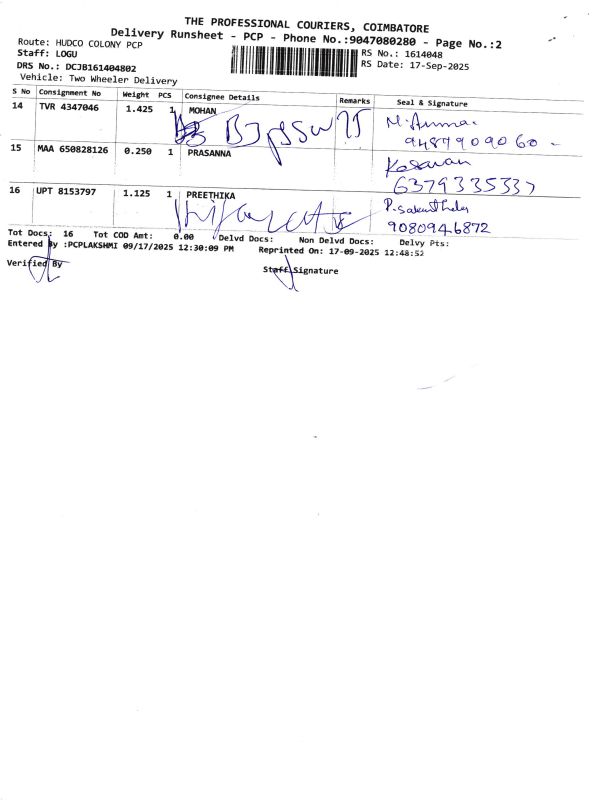 THE PROFESSIONAL COURIERS, COIMBATORE
Delivery Runsheet - PCP - Phone No.:9047080280 - Page No.:2
Route: HUDCO COLONY PCP
RS No.: 1614048
Staff: LOGU
RS Date: 17-Sep-2025
DRS No.: DCJB161404802
Vehicle: Two Wheeler Delivery
S No Consignment No Weight PCS Consignee Details Remarks Seal & Signature
14 TVR 4347046 1.425 1 MOHAN
15 MAA 650828126 0.250 1 PRASANNA
6379335337
16 UPT 8153797 1.125 1 PREETHIKA
P. Sakunthala
9080946872
Tot Docs: 16 Tot COD Amt: 0.00 Delvd Docs: Non Delvd Docs: Delvy Pts:
Entered By :PCPLAKSHMI 09/17/2025 12:30:09 PM Reprinted On: 17-09-2025 12:48:52
Verified By
Staff Signature